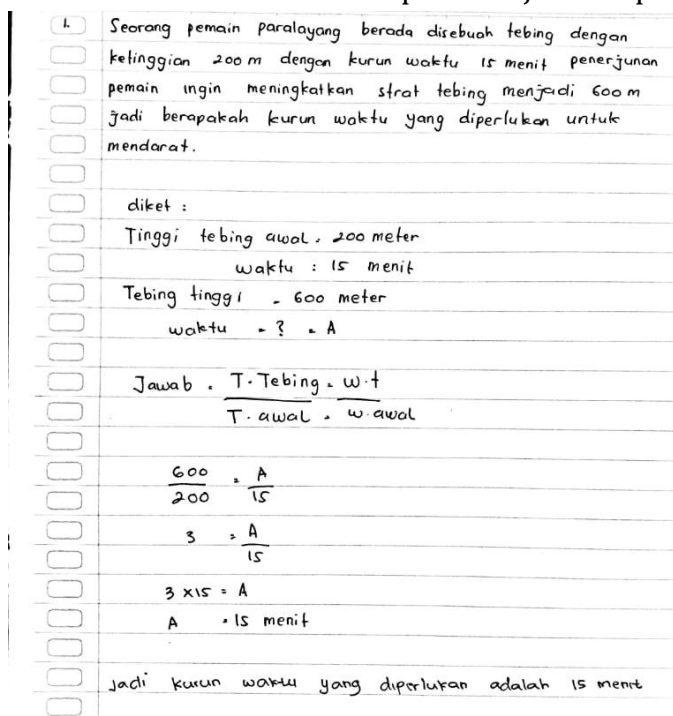 1. Seorang pemain paralayang berada disebuah tebing dengan
ketinggian 200 m dengan kurun waktu 15 menit penerjunan
pemain ingin meningkatkan strat tebing menjadi 600 m
jadi berapakah kurun waktu yang diperlukan untuk
mendarat.
diket :
Tinggi tebing awal = 200 meter
waktu : 15 menit
Tebing tinggi = 600 meter
waktu = ? = A
Jawab = T. Tebing = w.t
T. awal = w. awal
600 = A
200 15
3 = A
15
3 x 15 = A
A = 15 menit
Jadi kurun waktu yang diperlukan adalah 15 menit